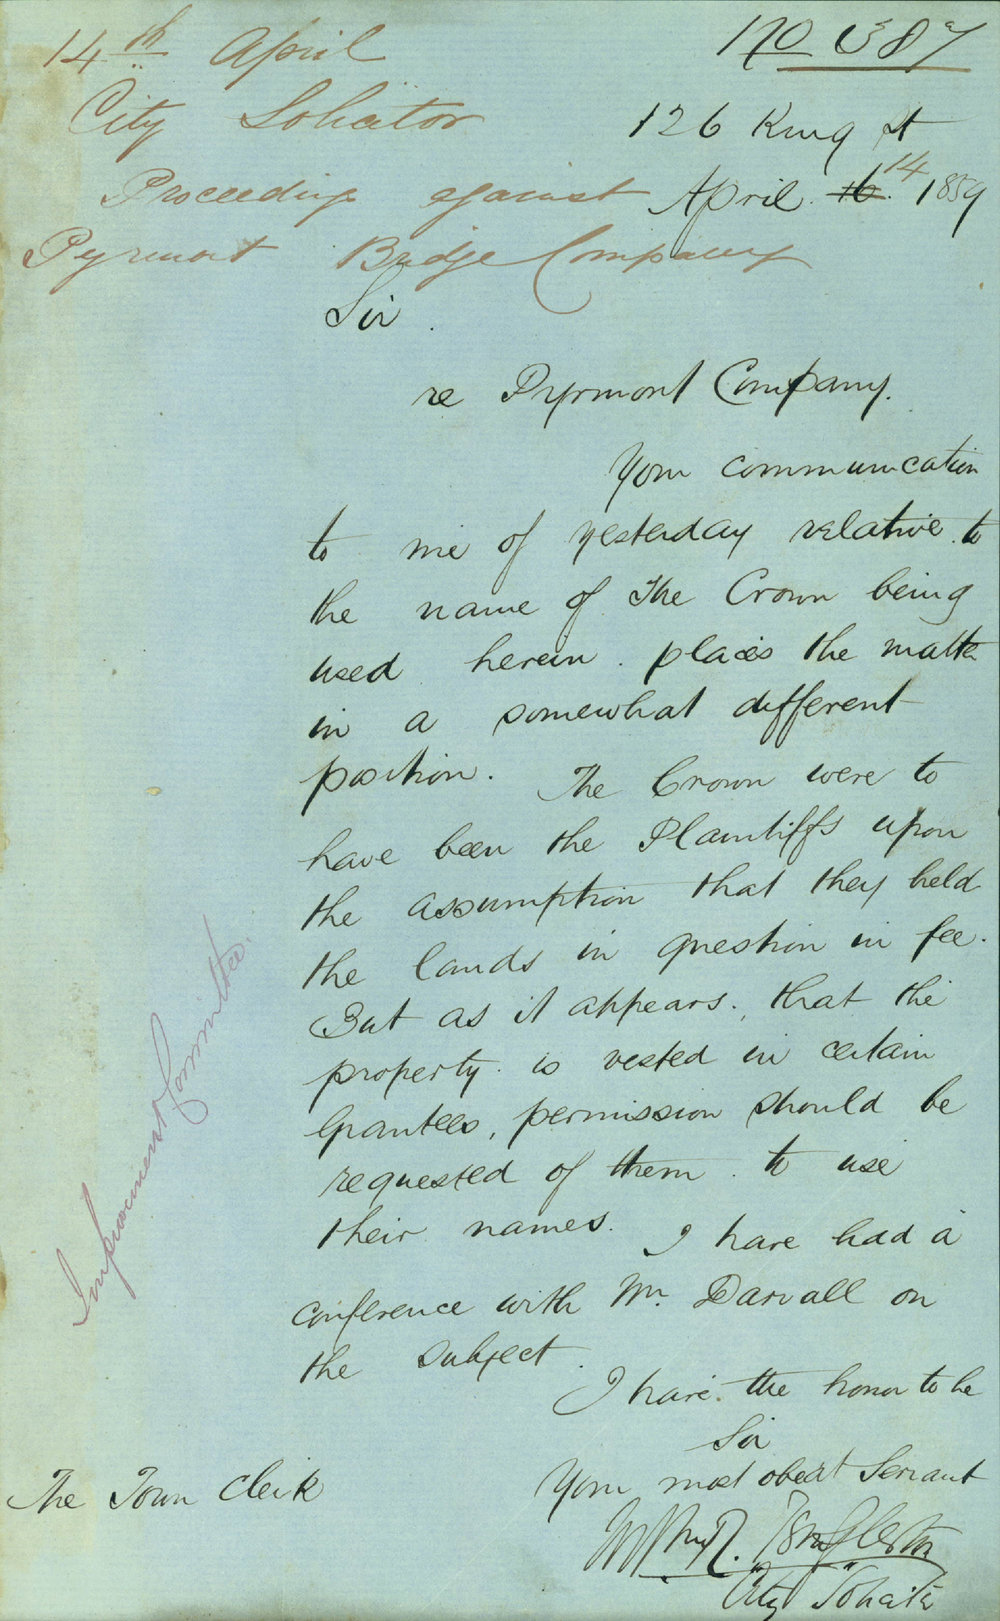 14th April
City Solicitor
Proceedings against
Pyrmont Bridge Company
No 387
126 King St
April 16 14 1859
Sir
re Pyrmont Company.
Your communication
to me of yesterday relative to
the name of The Crown being
used herein places the matter
in a somewhat different
position. The Crown were to
have been the Plaintiffs upon
the assumption that they held
the lands in question in fee.
But as it appears, that the
property is vested in certain
Grantees, permission should be
requested of them to use
their names. I have had a
conference with Mr. Darvall on
the subject.
I have the honor to be
Sir
Your most obedt Servant
City Solicitor
The Town Clerk
Improvement Committee.